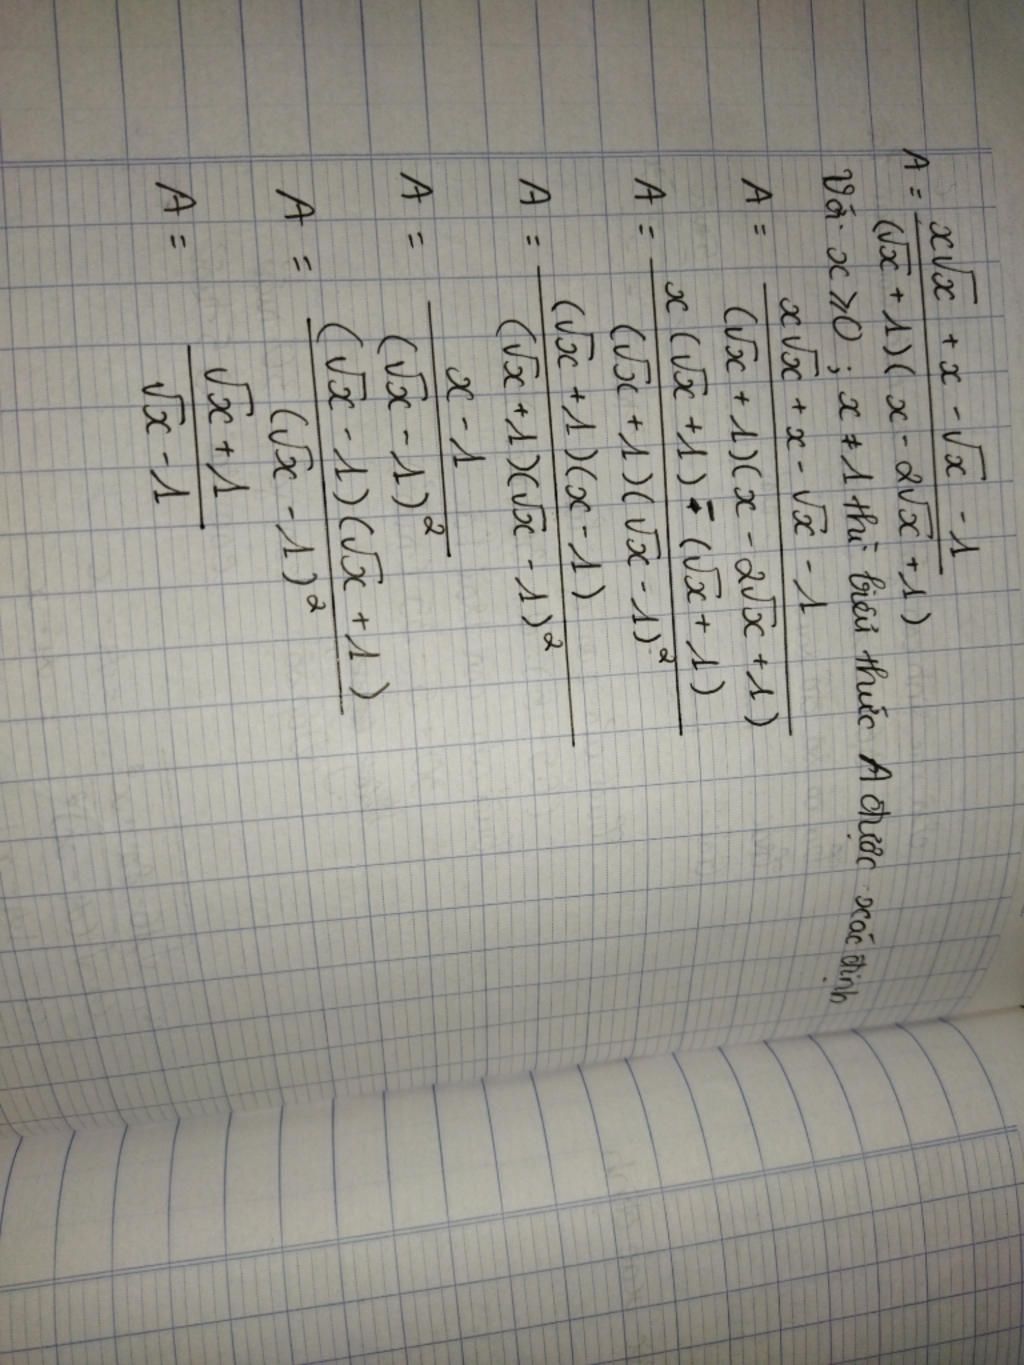 A = x√x + x - √x - 1 / (√x + 1)(x - 2√x + 1)
Với x ⩾ 0 ; x ≠ 1 thì biểu thức A được xác định
A = x√x + x - √x - 1 / (√x + 1)(x - 2√x + 1)
A = x(√x + 1) - (√x + 1) / (√x + 1)(√x - 1)²
A = (√x + 1)(x - 1) / (√x + 1)(√x - 1)²
A = x - 1 / (√x - 1)²
A = (√x - 1)(√x + 1) / (√x - 1)²
A = √x + 1 / √x - 1